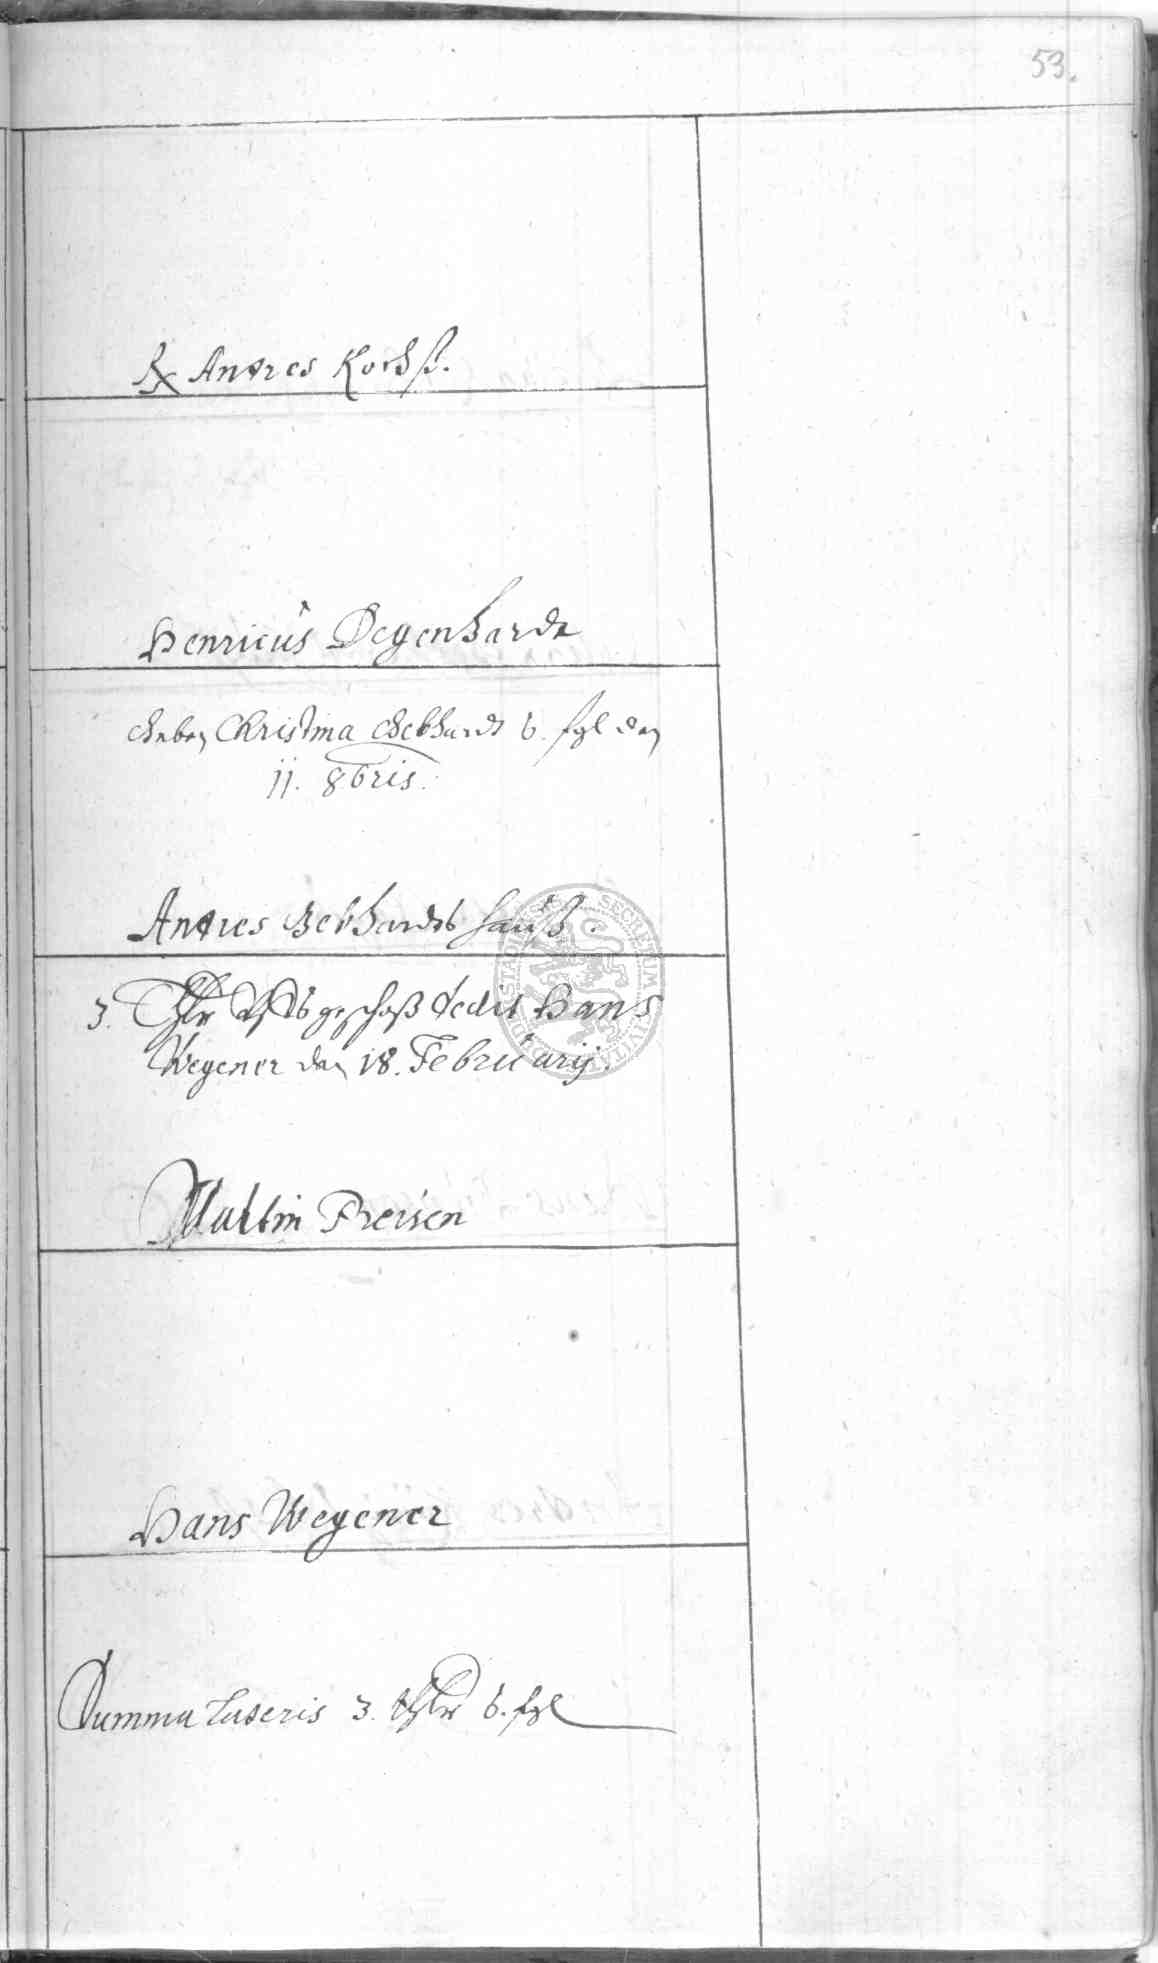 53.
Rx Andres Kochß.
Henricus Degenhardt
Geben Christina Gebhardt 6. sgl den
11. 8bris.
Andres Gebhardts hauß.
3. Thlr geschoß dedit Hans
Wegener den 18. Februarij.
Martin Freisen
Hans Wegener
Summa Lateris 3. thlr 6. sgl
SECRETUM